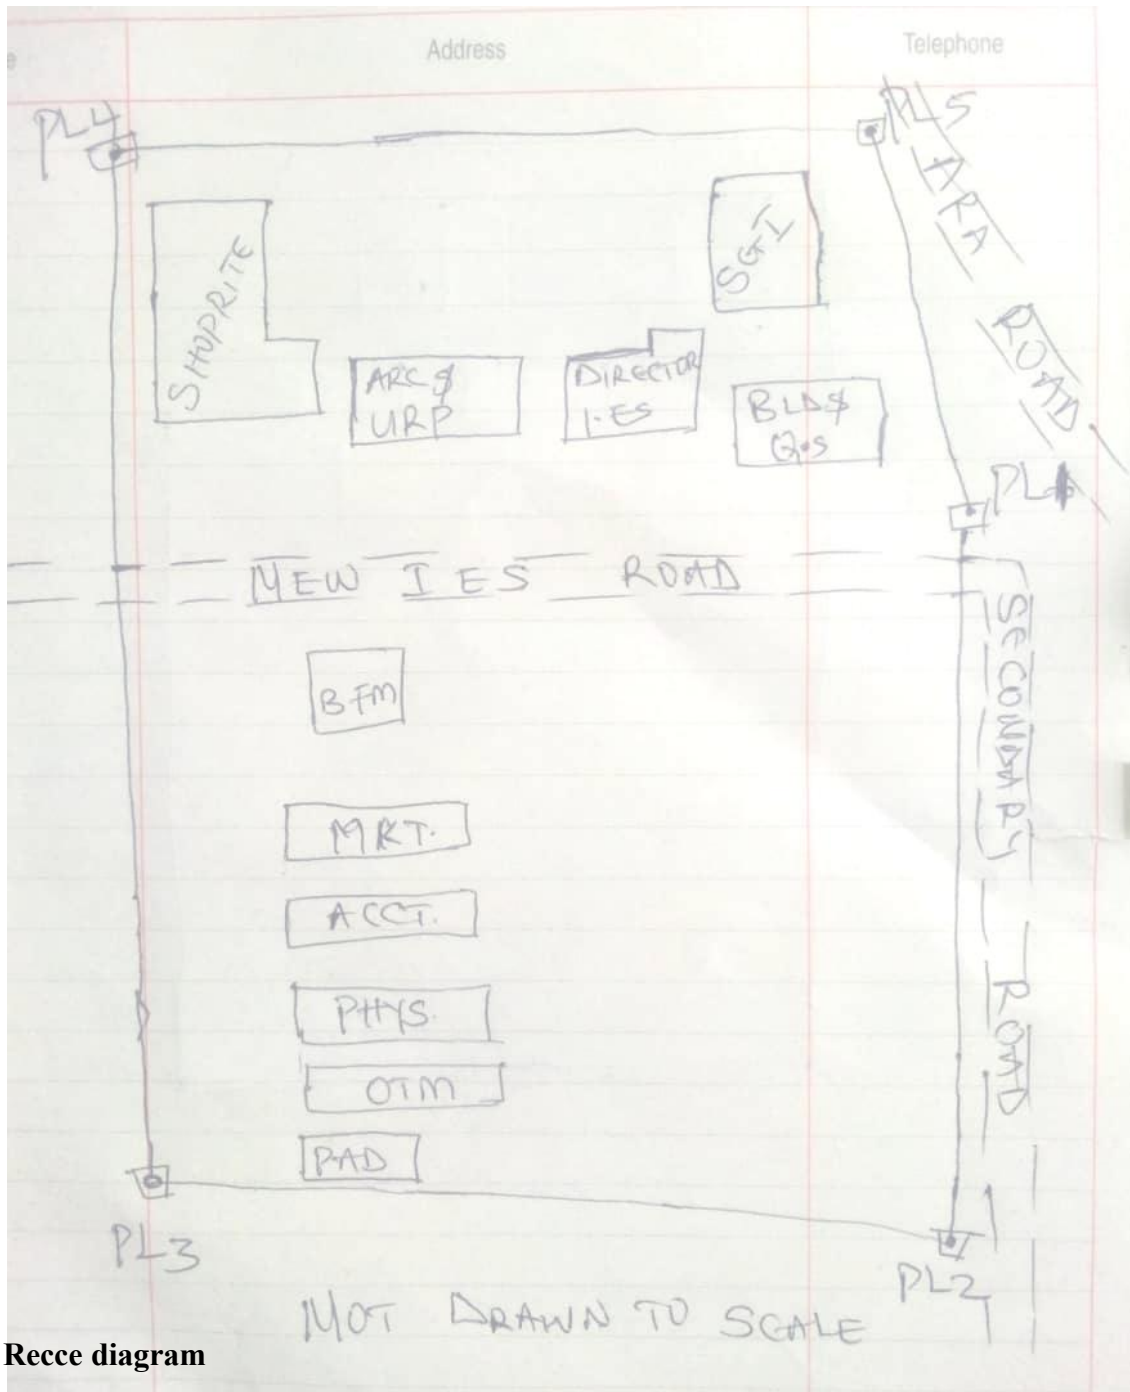 Address
Telephone
PL4
PL5
ARA ROAD
SHOPRITE
SGI
ARC $
URP
DIRECTOR
I.ES
BLD $
Q.S
PL1
NEW IES ROAD
SECONDARY ROAD
BFM
MKT.
ACCT.
PHYS.
OTM
PAD
PL3
PL2
NOT DRAWN TO SCALE
Recce diagram